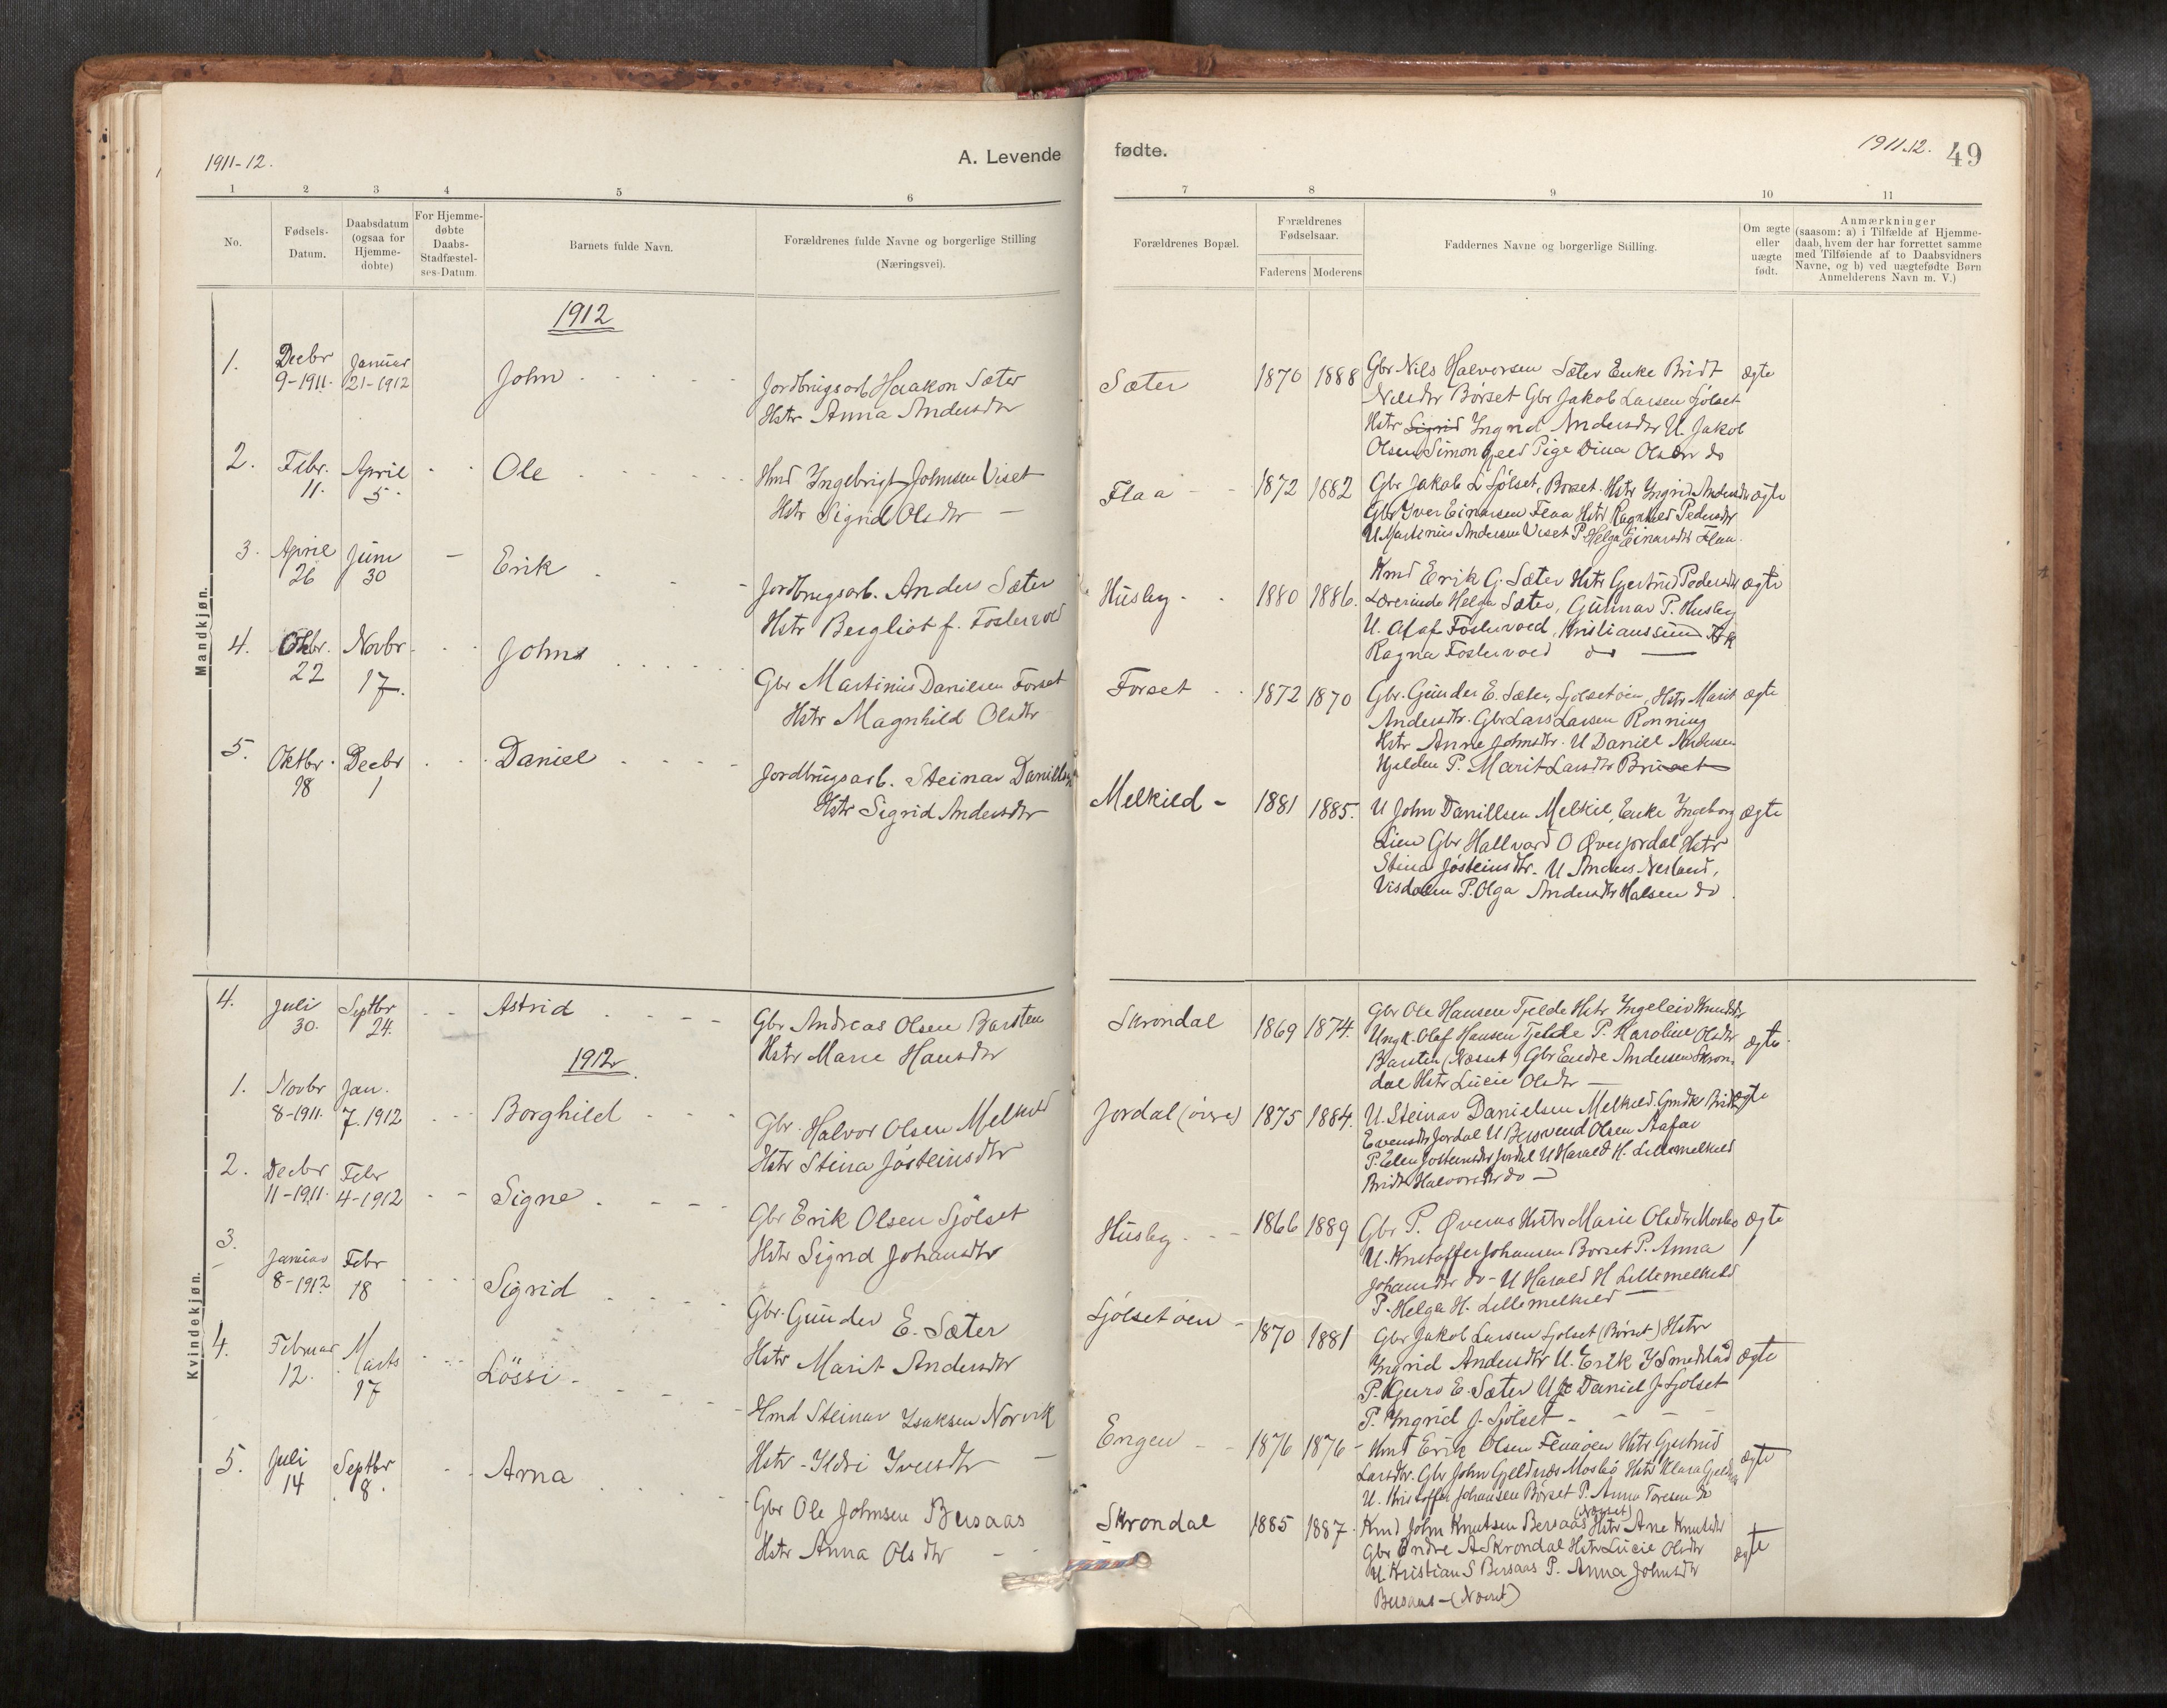 1911-12.
A. Levende
1 2 3 4 5 6
No.
Fødsels-
Datum.
Daabsdatum
(ogsaa for
Hjemme-
døbte)
For Hjemme-
døbte
Daabs-
Stadfæstel-
ses-Datum
Barnets fulde Navn.
Forældrenes fulde Navne og borgerlige Stilling
(Næringsvei).
Mandkjøn.
1912
1. Decbr Januar
9-1911. 21-1912 John
Jordbrugsarb Haakon Sæter
Hstr Anna Andersdtr
2. Febr. April Ole
11. 5.
Hmd Ingebrigt Johnsen Viset
Hstr Sigrid Olsdtr
3. April Juni Erik
26 30
Jordbrugsarb. Anders Sæter
Hstr Bergliot f. Fostervold
4. Oktbr. Novbr. John
22 17.
Gbr Martinius Danielsen Forset
Hstr Magnhild Olsdtr
5. Oktbr. Decbr Daniel
28 1
Jordbrugsarb. Steinar Danielsen
Hstr Sigrid Andersdtr
Kvindekjøn.
4. Juli Septbr Astrid
30. 24.
Gbr Andreas Olsen Barsten
Hstr Marie Hansdtr
1912
1. Novbr Jan.
8-1911. 7.1912 Borghild
Gbr. Halvor Olsen Melkild
Hstr Stina Jósteinsdtr
2. Decbr Febr
11-1911. 4-1912 Signe
Gbr Erik Olsen Sjölset
Hstr Sigrid Johansdtr
3. Januar Febr
8-1912 18 Sigrid
Gbr. Gunder E. Sæter
Hstr Marit Andersdtr
4. Februar Marts
12. 17 Lössi
Hmd Steinar Isaksen Norvik
Hstr Ildri Iversdtr
5. Juli Septbr Arna
14 8.
Gbr Ole Johnsen Bersaas
Hstr Anna Olsdtr
fødte.
1911.12. 49
7 8 9 10 11
Forældrenes Bopæl.
Forældrenes
Fødselsaar.
Faderens Moderens
Faddernes Navne og borgerlige Stilling.
Om ægte
eller
uægte
født.
Anmærkninger
(saasom: a) i Tilfælde af Hjemme-
daab, hvem der har forrettet samme
med Tilføiende af to Daabsvidners
Navne, og b) ved uægtefødte Børn
Anmelderens Navn m. V.)
Sæter 1870 1888 Gbr Nils Halvorsen Sæter Enke Bridt ægte
Nilsdtr Börset Gbr Jakob Larsen Sjölset
Hstr Sigrid Ingrid Andersdtr U. Jakob
Olsen Simon Pige Dina Olsdtr do
Flaa 1872 1882 Gbr Jakob L Sjölset, Borset. Hstr Ingrid Andersdtr ægte
Gbr Iver Einarsen Flaa Hstr Ragnhild Pedersdtr
U Martinus Andersen Viset P Helga Einarsdtr Flaa.
Husby 1880 1886. Kmd Erik G. Sæter Hstr Gjertrud Pedersdtr ægte
Lærerinde Helga Sæter, Gunnar P. Husby
U. Olaf Fostervold, Kristianssund
Ragna Fostervold do
Forset 1872 1870 Gbr. Gunder E. Sæter, Sjölsetöien, Hstr Marit ægte
Andersdtr. Gbr Lars Larsen Rönning
Hstr Anne Johnsdtr. U Daniel Andersen
Hjelden P. Marit Larsdtr Bruset
Melkild 1881 1885. U John Daniellsen Melkil, Enke Ingeborg ægte
Lien Gbr Hallvard O Øverjordal Hstr
Stina Jósteinsdtr. U Anders Nesland,
Visdalen P. Olga Andersdtr Halsen do
Skrondal 1869 1874. Gbr Ole Hansen Tjelde Hstr Ingeleiv Knudsdtr ægte
Ungk. Olaf Hansen Tjelde P. Karoline Olsdtr
Barsten (Næsset) Gbr Endre Andersen Skron-
dal Hstr Lucie Olsdtr
Jordal (övre) 1875 1884. U. Steinar Danielsen Melkild. Gmdk Bridt ægte
Evensdtr Jordal U Bersvend Olsen Aafar
P. Elen Josteinsdtr Jordal U Harald H. Lillemelkild
Bridt Halvorsdtr do
Husby 1866 1889 Gbr P. Øveraas Hstr Marie Olsdtr Mosbø ægte
U. Kristoffer Johansen Borset P. Anna
Johansdtr do - U Harald H Lillemelkild
P. Helga H. Lillemelkild
Sjölsetöien 1870 1881 Gbr Jakob Larsen Sjölset (Börset) Hstr ægte
Ingrid Andersdtr U. Erik
P. Guro E. Sæter U Daniel J. Sjölset
P. Ingrid J. Sjölset
Engen 1876 1876 Hmd Erik Olsen Flaaöien Hstr Gjertrud ægte
Larsdtr. Gbr John Gjeldnæs Mosbö Hstr Klara Gjeldnæs
U. Kristoffer Johansen Börset P. Anna Toresen do
Skrondal 1885 1887. Kmd John Knutsen Bersaas (Næsset) Hstr Ane Knutsdtr ægte
Gbr Endre A Skrondal Hstr Lucie Olsdtr
U. Kristian S Bersaas P. Anna Johnsdtr
Bersaas (Næset)